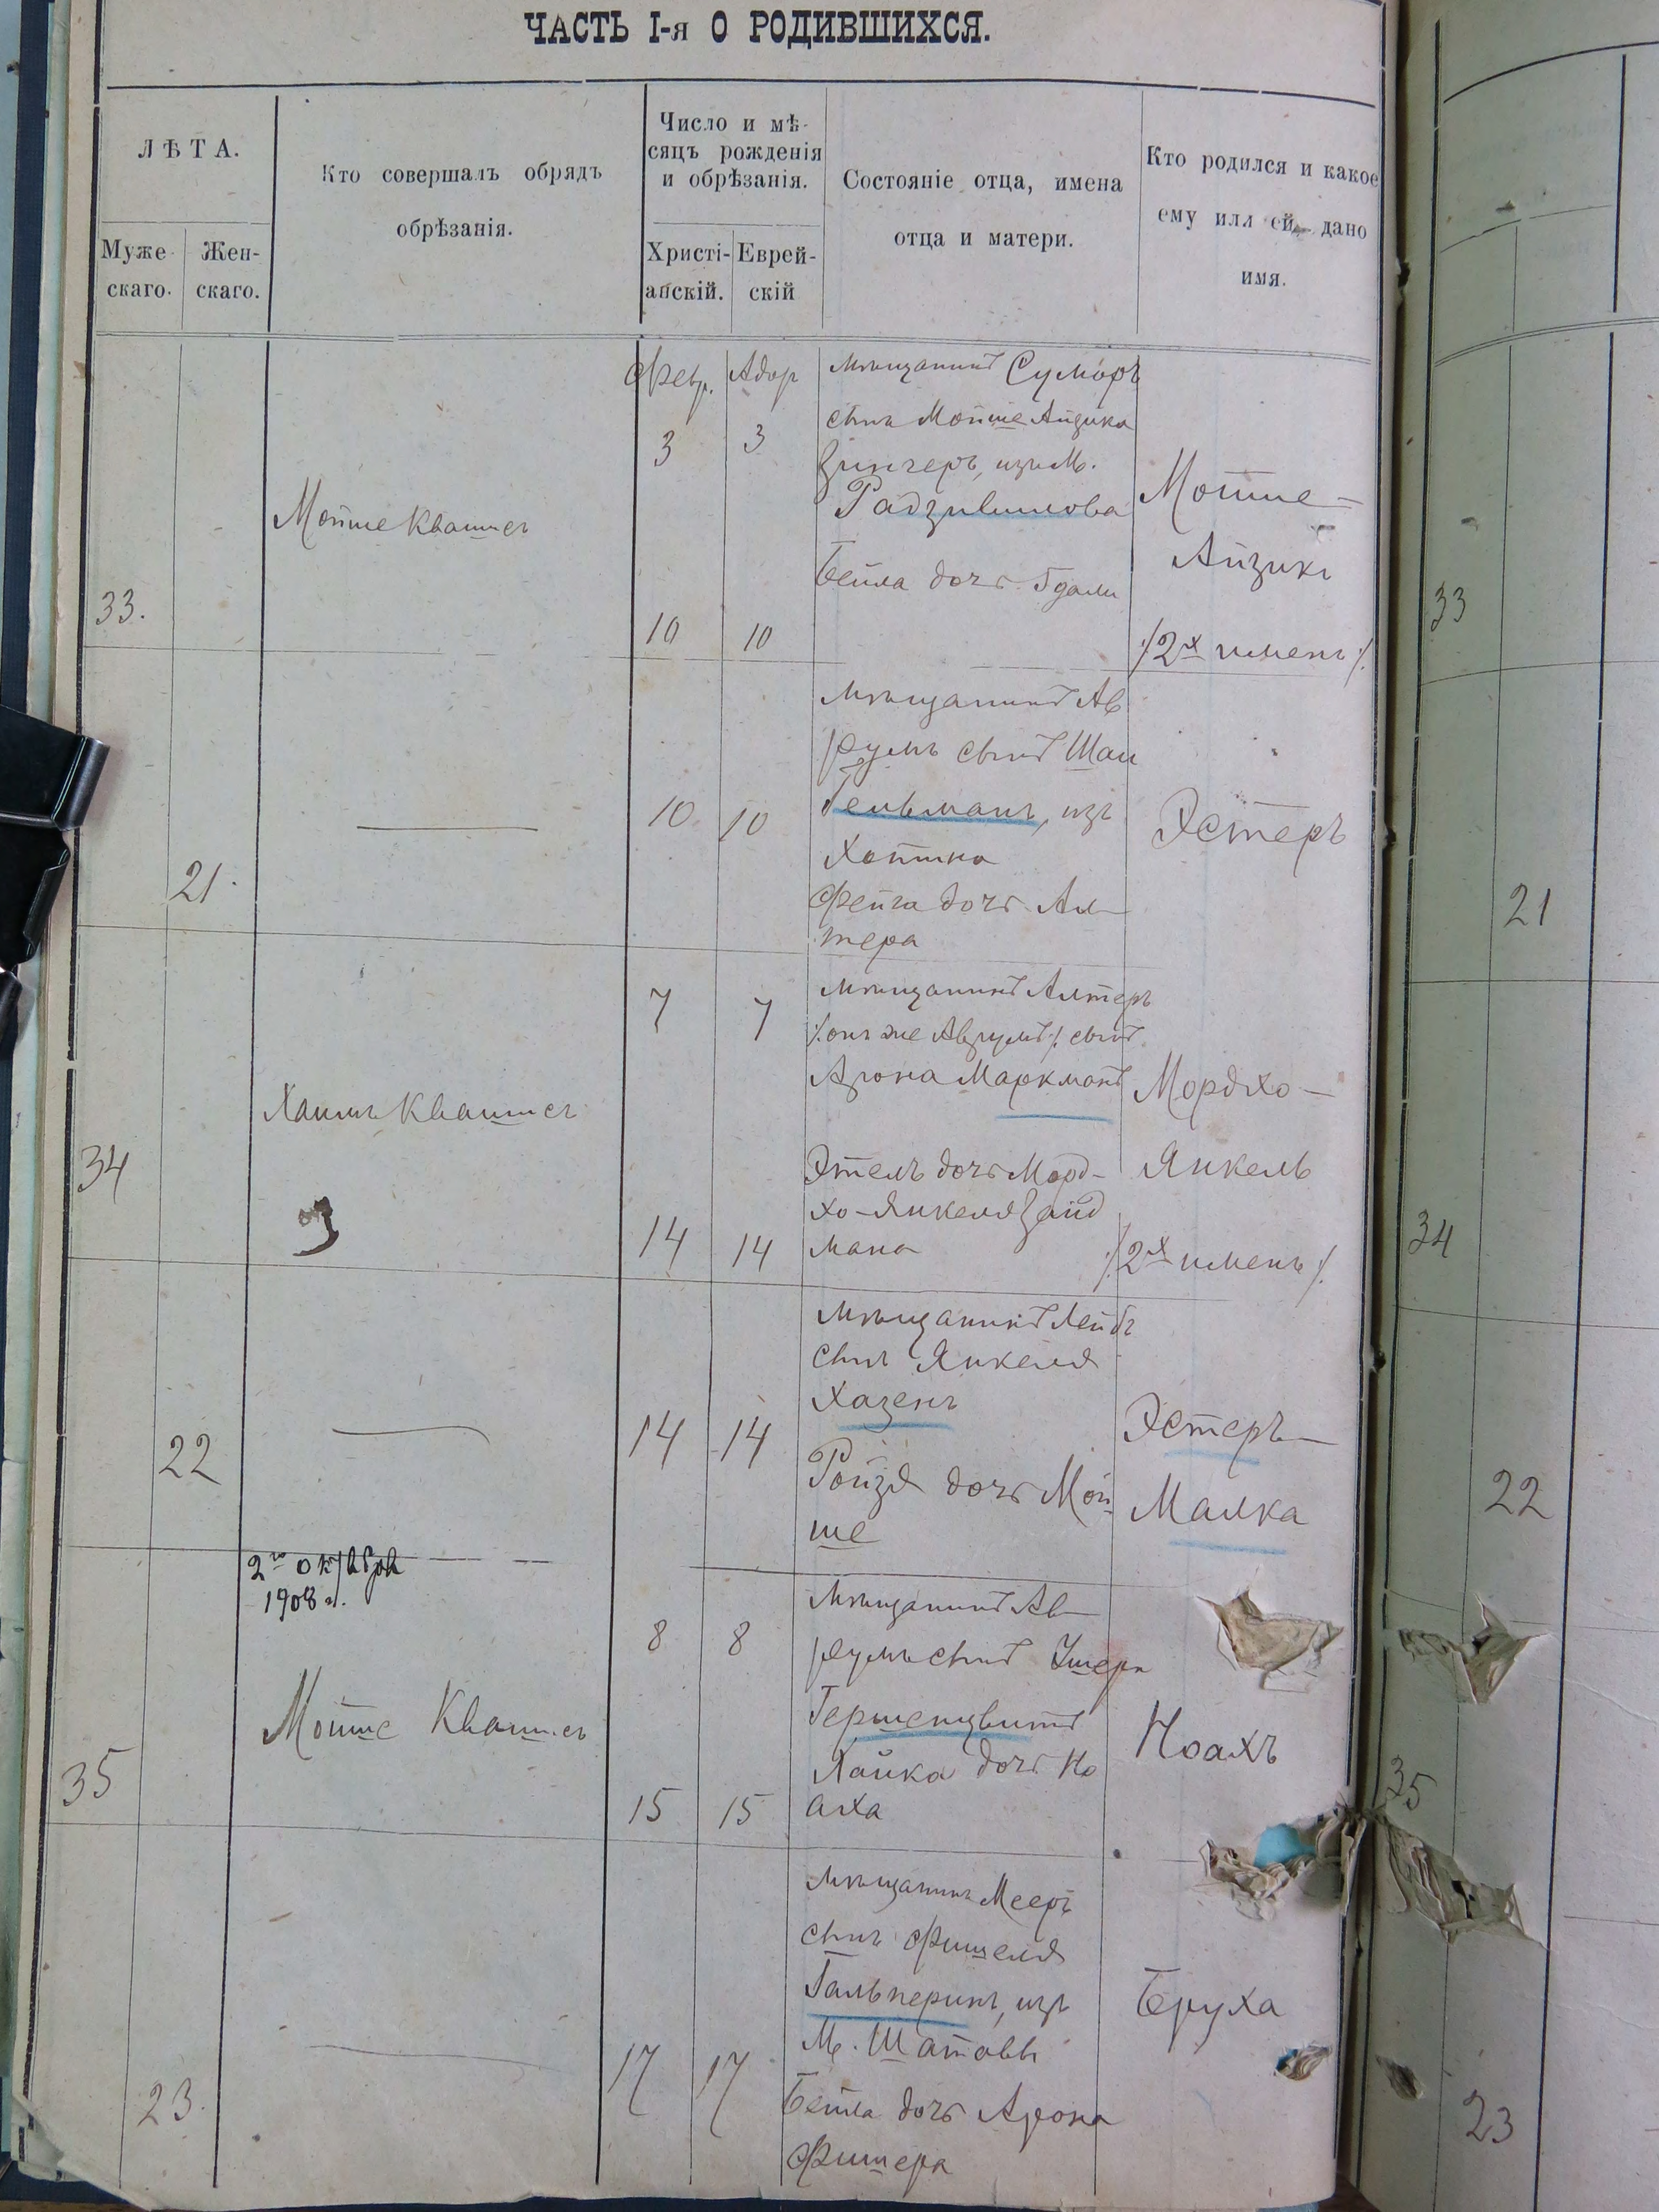 ЧАСТЬ I-я О РОДИВШИХСЯ.
ЛѢТА.
Муже-
скаго.
Жен-
скаго.
Кто совершалъ обрядъ
обрѣзанія.
Число и мѣ-
сяцъ рожденія
и обрѣзанія.
Христі-
анскій.
Еврей-
скій
Состояніе отца, имена
отца и матери.
Кто родился и какое
ему или ей дано
имя.
33.
Мойше Квашисъ
Февр. Адар
3 3
10 10
мѣщанинъ Сумеръ
сынъ Мойше Айзика
Зингеръ, изъ М.
Радзивилова
Бейла дочь Гдали
Мойше-
Айзикъ
/2х именъ/
33
21.
10 10
мѣщанинъ Ав
румъ сынъ Шаи
Гельманъ, изъ
Хотина
Фейга дочь Ал-
тера
Эстеръ
21
34
Хаимъ Квашисъ
7 7
14 14
мѣщанинъ Алтеръ
/онъ же Аврумъ/ сынъ
Арона Маркманъ
Этель дочь Морд-
хо-Янкеля Зайд
мана
Мордхо-
Янкель
/2х именъ/
34
22
14 14
мѣщанинъ Лейбъ
сынъ Янкеля
Хазенъ
Ройзя дочь Мой
ше
Эстеръ-
Малка
22
2го октября
1908 г.
35
Мойше Квашисъ
8 8
15 15
мѣщанинъ Ав-
румъ сынъ Ушера
Гершенцвитъ
Хайка дочь Но
аха
Ноахъ
35
23.
17 17
мѣщанинъ Мееръ
сынъ Фишеля
Гальперинъ, изъ
М. Шатавы
Бейла дочь Арона
Фишера
Бруха
23